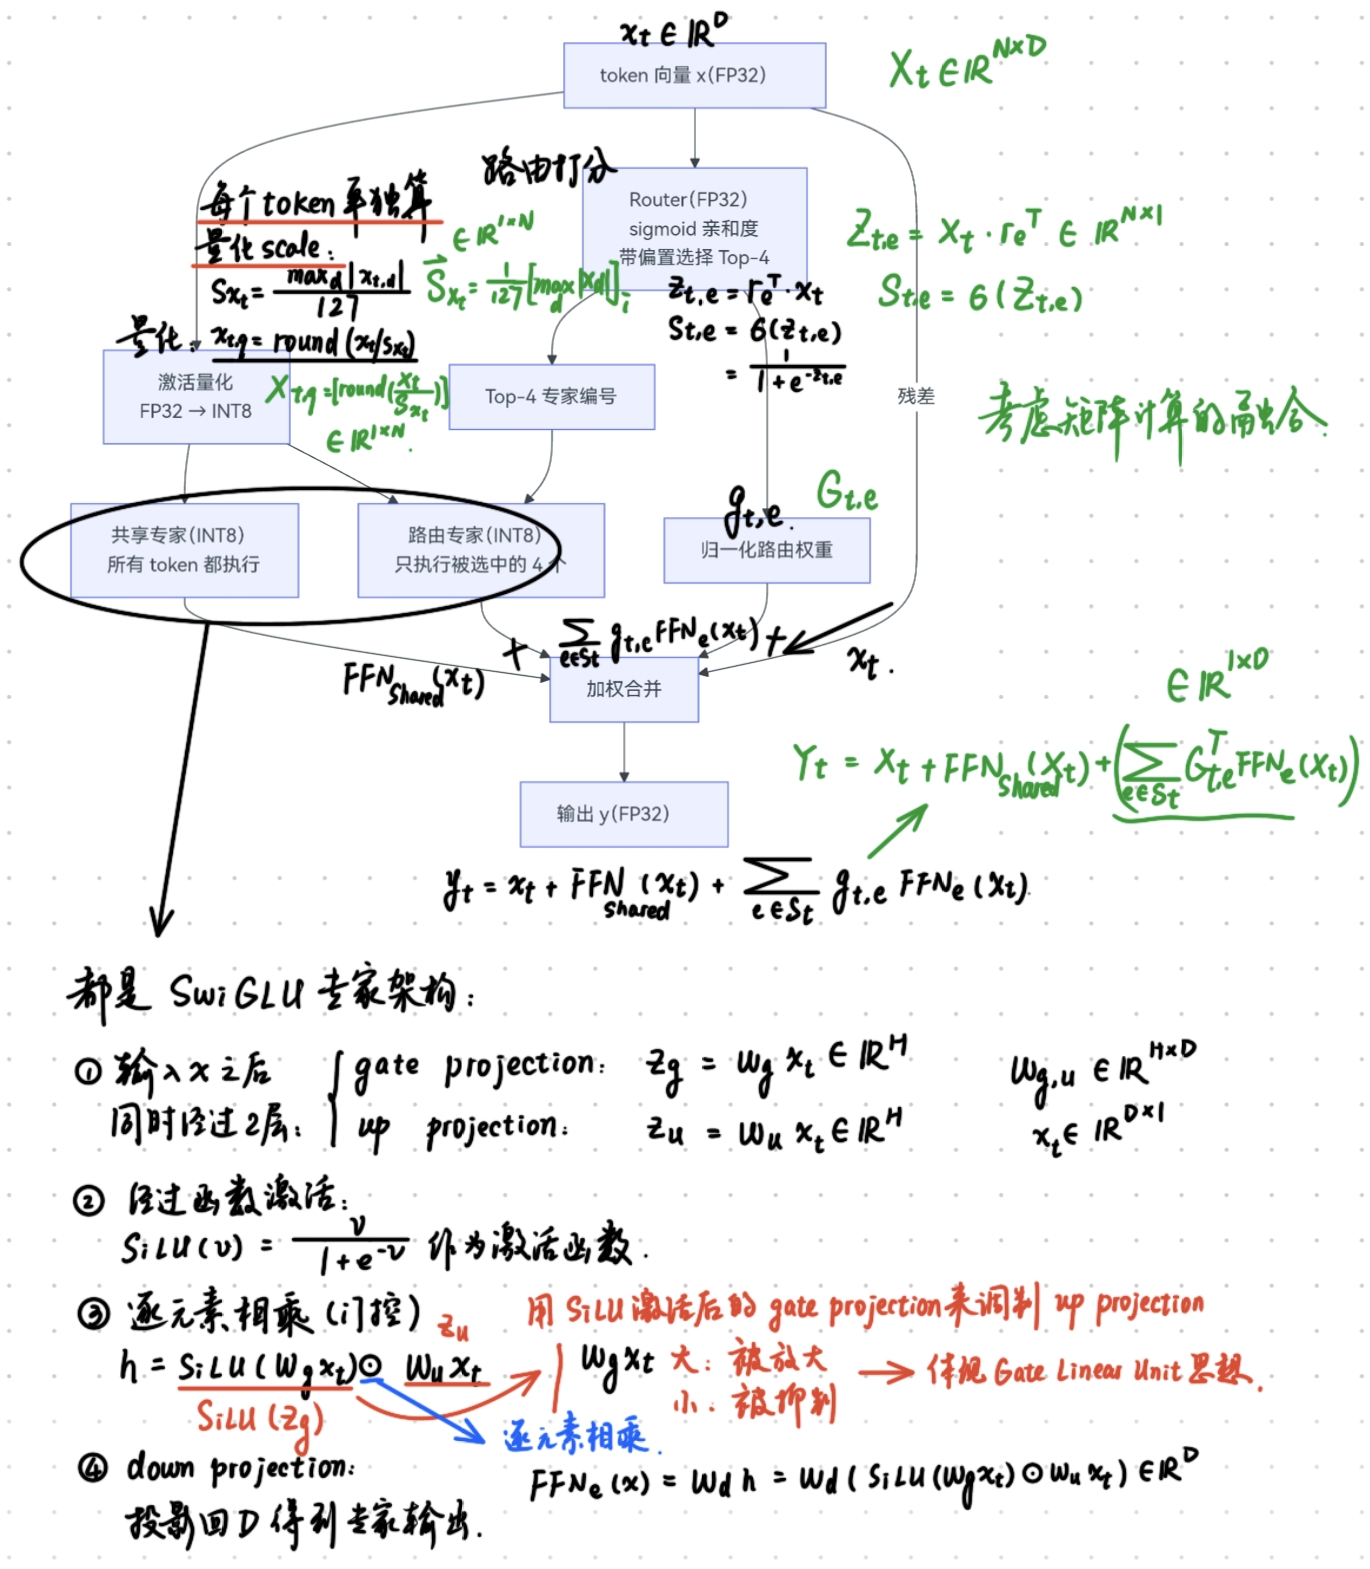 x_t ∈ ℝ^D
token 向量 x(FP32)
X_t ∈ ℝ^{N×D}
路由打分
每个 token 单独算
量化 scale:
S_{x_t} = max_d |x_{t,d}| / 127
∈ ℝ^{1×N}
\vec{S}_{x_t} = 1/127 [max_d |x_d|]_i
Router(FP32)
sigmoid 亲和度
带偏置选择 Top-4
Z_{t,e} = r_e^T · x_t
S_{t,e} = 6(Z_{t,e})
= 1 / (1 + e^{-z_{t,e}})
Z_{t,e} = X_t · r_e^T ∈ ℝ^{N×1}
S_{t,e} = 6(Z_{t,e})
量化: x_{t,q} = round(x_t/s_{x_t})
激活量化
FP32 → INT8
X_{t,q} = [round(X_t / S_{x_t})]
∈ ℝ^{1×N}.
Top-4 专家编号
残差
考虑矩阵计算的融合.
共享专家(INT8)
所有 token 都执行
路由专家(INT8)
只执行被选中的 4 个
g_{t,e}.
G_{t,e}
归一化路由权重
FFN_{Shared}(x_t)
+ ∑_{e∈S_t} g_{t,e} FFN_e(x_t) +
x_t.
加权合并
∈ ℝ^{1×D}
Y_t = X_t + FFN_{Shared}(X_t) + (∑_{e∈S_t} G_{t,e}^T FFN_e(X_t))
输出 y(FP32)
y_t = x_t + FFN_{shared}(x_t) + ∑_{e∈S_t} g_{t,e} FFN_e(x_t).
都是 SwiGLU 专家架构:
① 输入x之后
同时经过2层:
gate projection: z_g = W_g x_t ∈ ℝ^H
up projection: z_u = W_u x_t ∈ ℝ^H
W_{g,u} ∈ ℝ^{H×D}
x_t ∈ ℝ^{D×1}
② 经过函数激活:
SiLU(v) = v / (1 + e^{-v}) 作为激活函数.
③ 逐元素相乘 (门控)
z_u
h = SiLU(W_g x_t) ⊙ W_u x_t
SiLU(z_g)
用 SiLU 激活后的 gate projection来调制 up projection
W_g x_t 大: 被放大
小: 被抑制
→ 体现 Gate Linear Unit 思想.
逐元素相乘.
④ down projection:
投影回D 得到专家输出.
FFN_e(x) = W_d h = W_d (SiLU(W_g x_t) ⊙ W_u x_t) ∈ ℝ^D